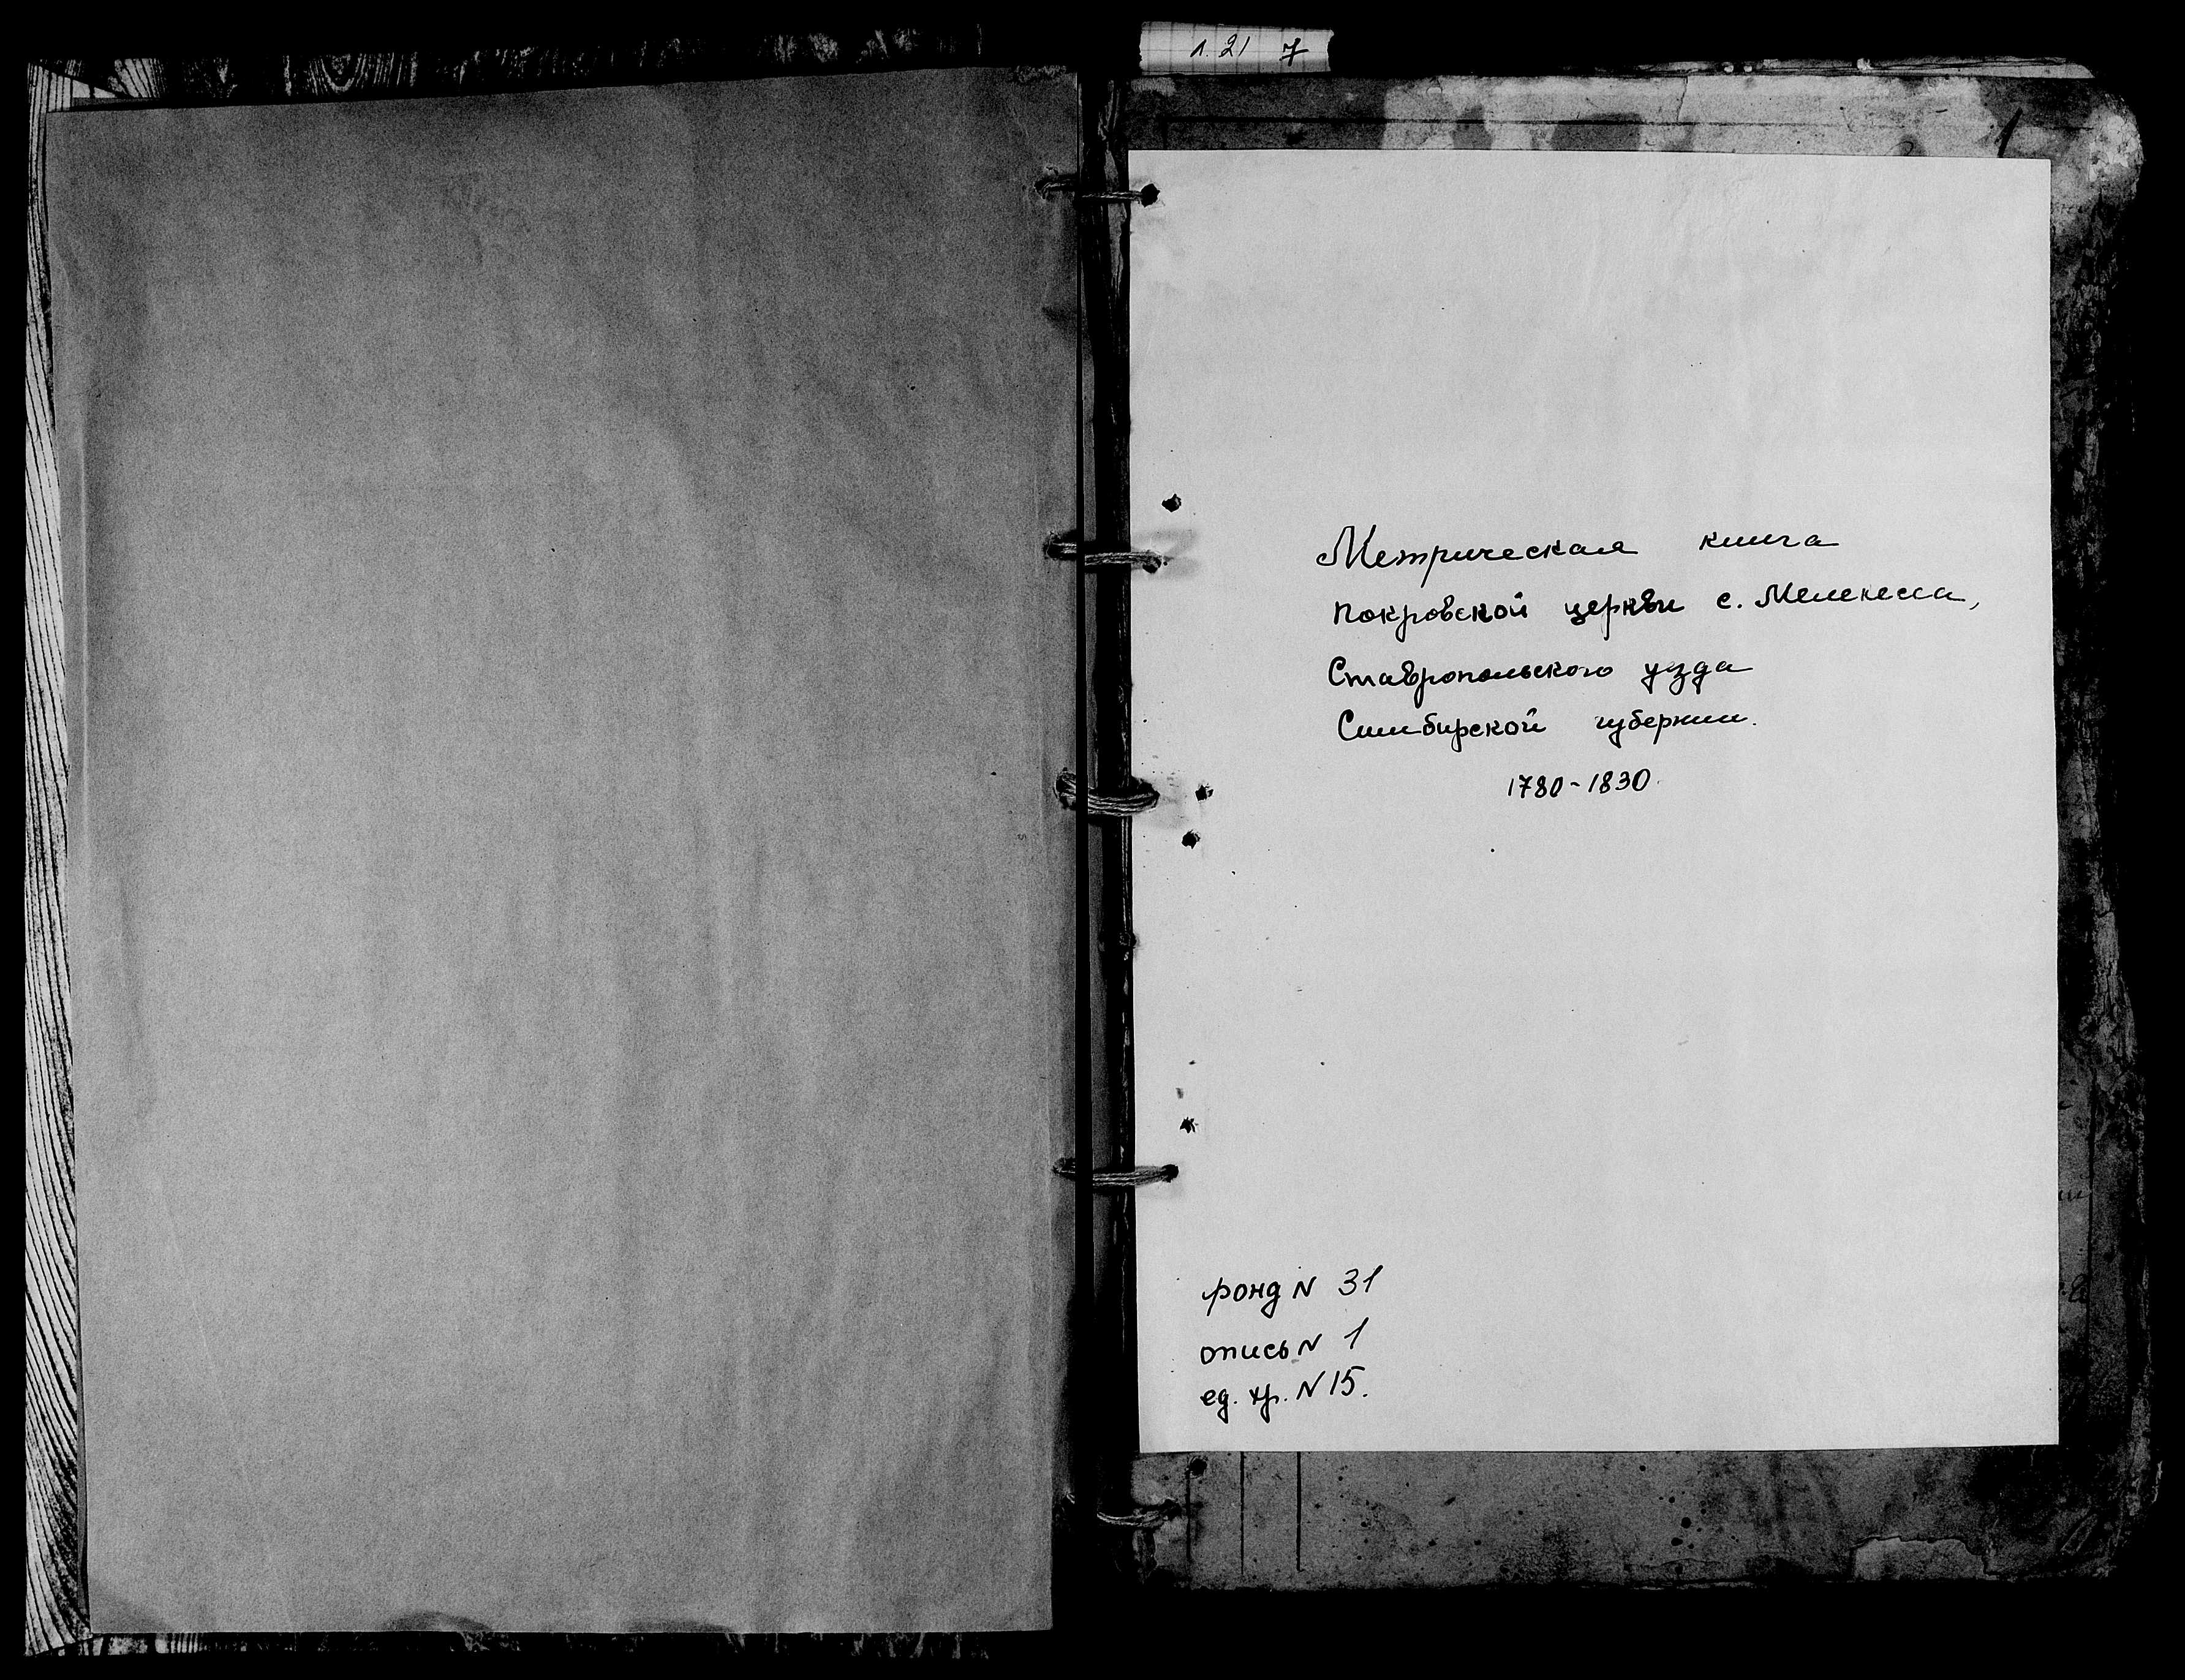 1. 21 7
1
Метрическая книга
Покровской церкви с. Мелекесса,
Ставропольского узда
Симбирской губернии.
1780-1830.
фонд N 31
опись N 1
ед. хр. N 15.